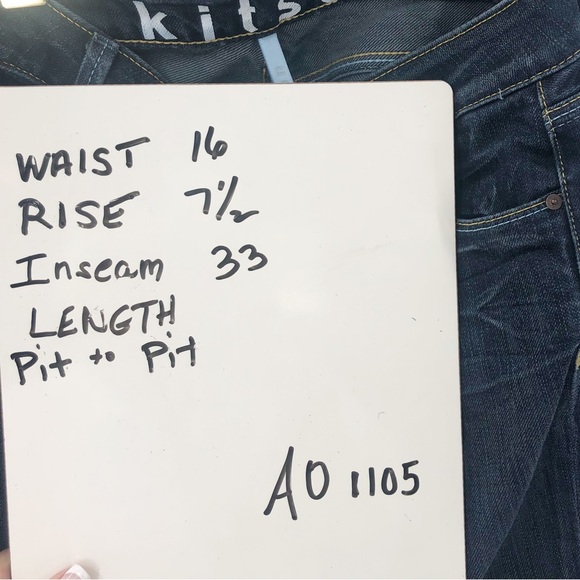 kits
WAIST 16
RISE 7 1/2
Inseam 33
LENGTH
Pit to Pit
AO 1105